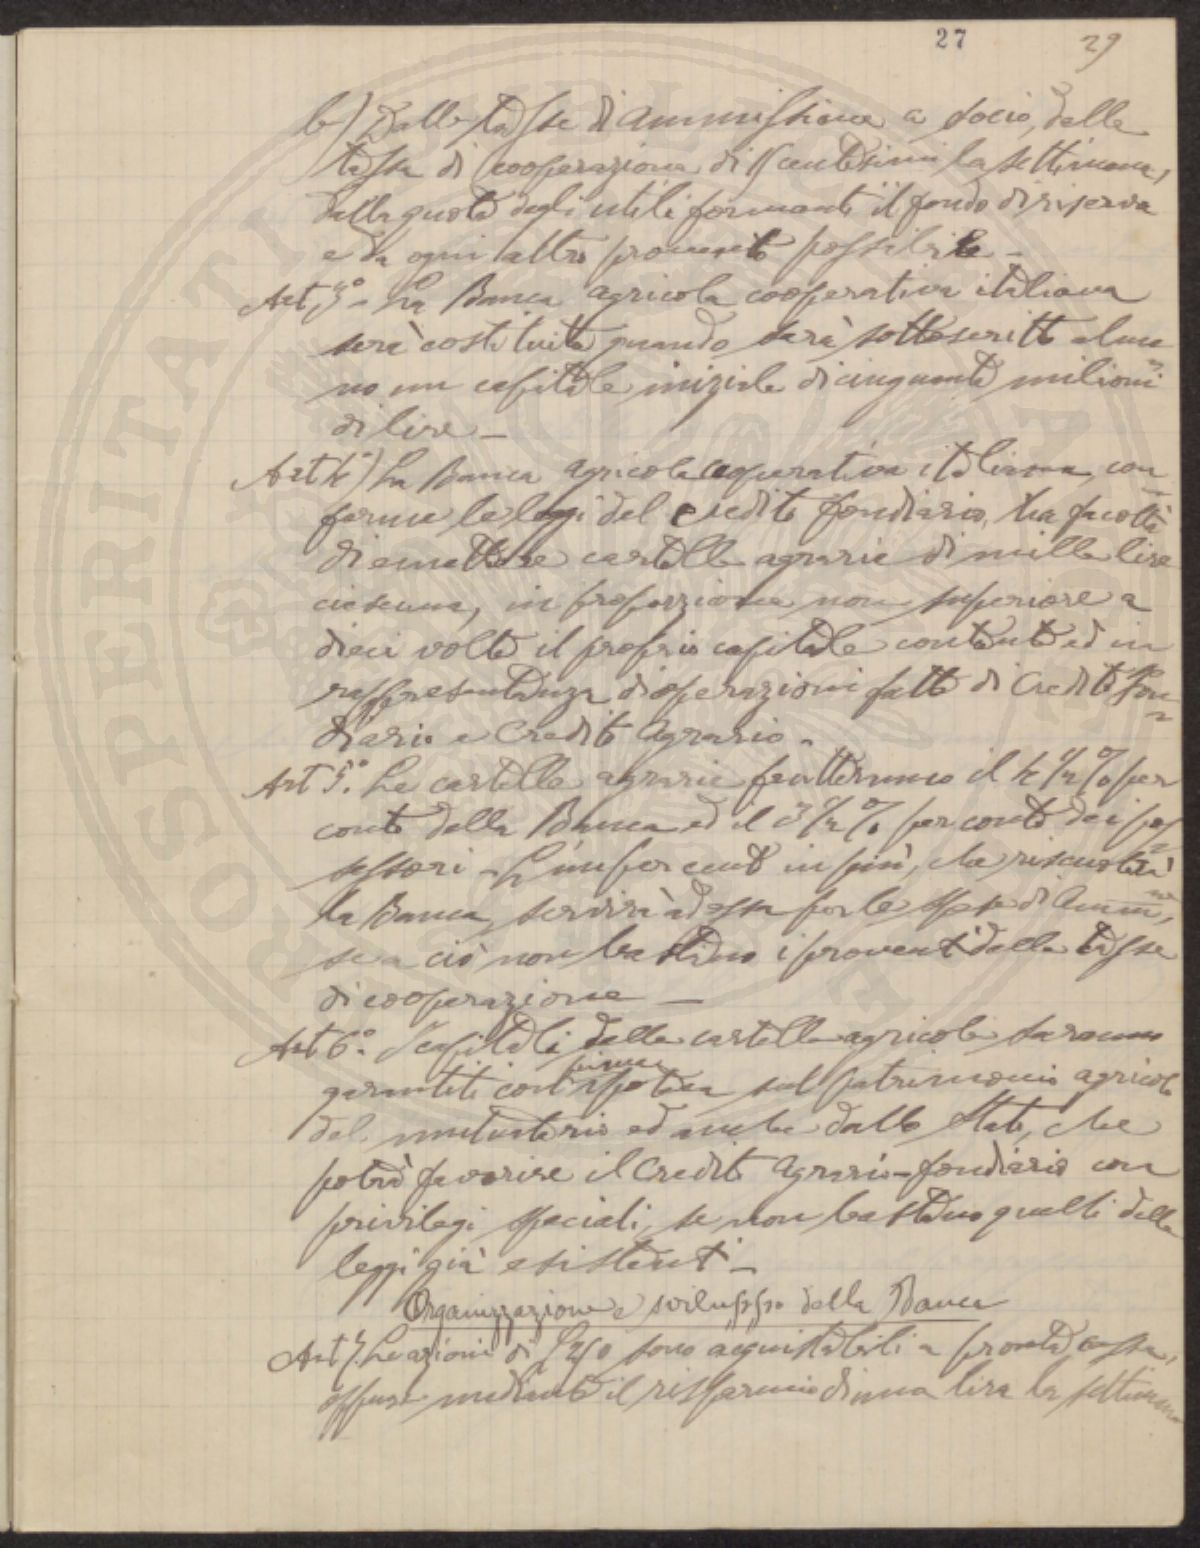 27 29
b) Dalle tasse di ammissione a socio, dalle
tassa di cooperazione di 5 centesimi la settimana,
dalla quota degli utili formanti il fondo di riserva
e da ogni altro provento possibile –
Art 3° – La Banca agricola cooperativa italiana
sarà costituita quando sarà sottoscritto alme
no un capitale iniziale di cinquanta milioni
di lire –
Art 4°) La Banca agricola cooperativa italiana, con
forme le leggi del credito fondiario, ha facoltà
di emettere cartelle agrarie di mille lire
ciascuna, in proporzione non superiore a
dieci volte il proprio capitale contante ed in
rappresentanza di operazioni fatte di Credito Fon=
diario e Credito Agrario –
Art 5°. Le cartelle agrarie frutteranno il 4 1/2 % per
conto della Banca ed il 3 1/2 % per conto dei pos
sessori – L'un per cento in più, che riscuoterà
la Banca, servirà ad essa per le spese di Amm.ne,
se a ciò non bastino i proventi della tasse
di cooperazione –
Art 6°. I capitali delle cartelle agricole saranno
prima
garantiti con ipoteca sul patrimonio agricolo
del mutuatario ed anche dallo Stato, che
potrà favorire il Credito Agrario-fondiario con
privilegi speciali, se non bastino quelli delle
leggi già esistenti –
Organizzazione e sviluppo della Banca
Art 7. Le azioni di sono acquistabili a pronta cassa,
oppure mediante il risparmio di una lira la settimana